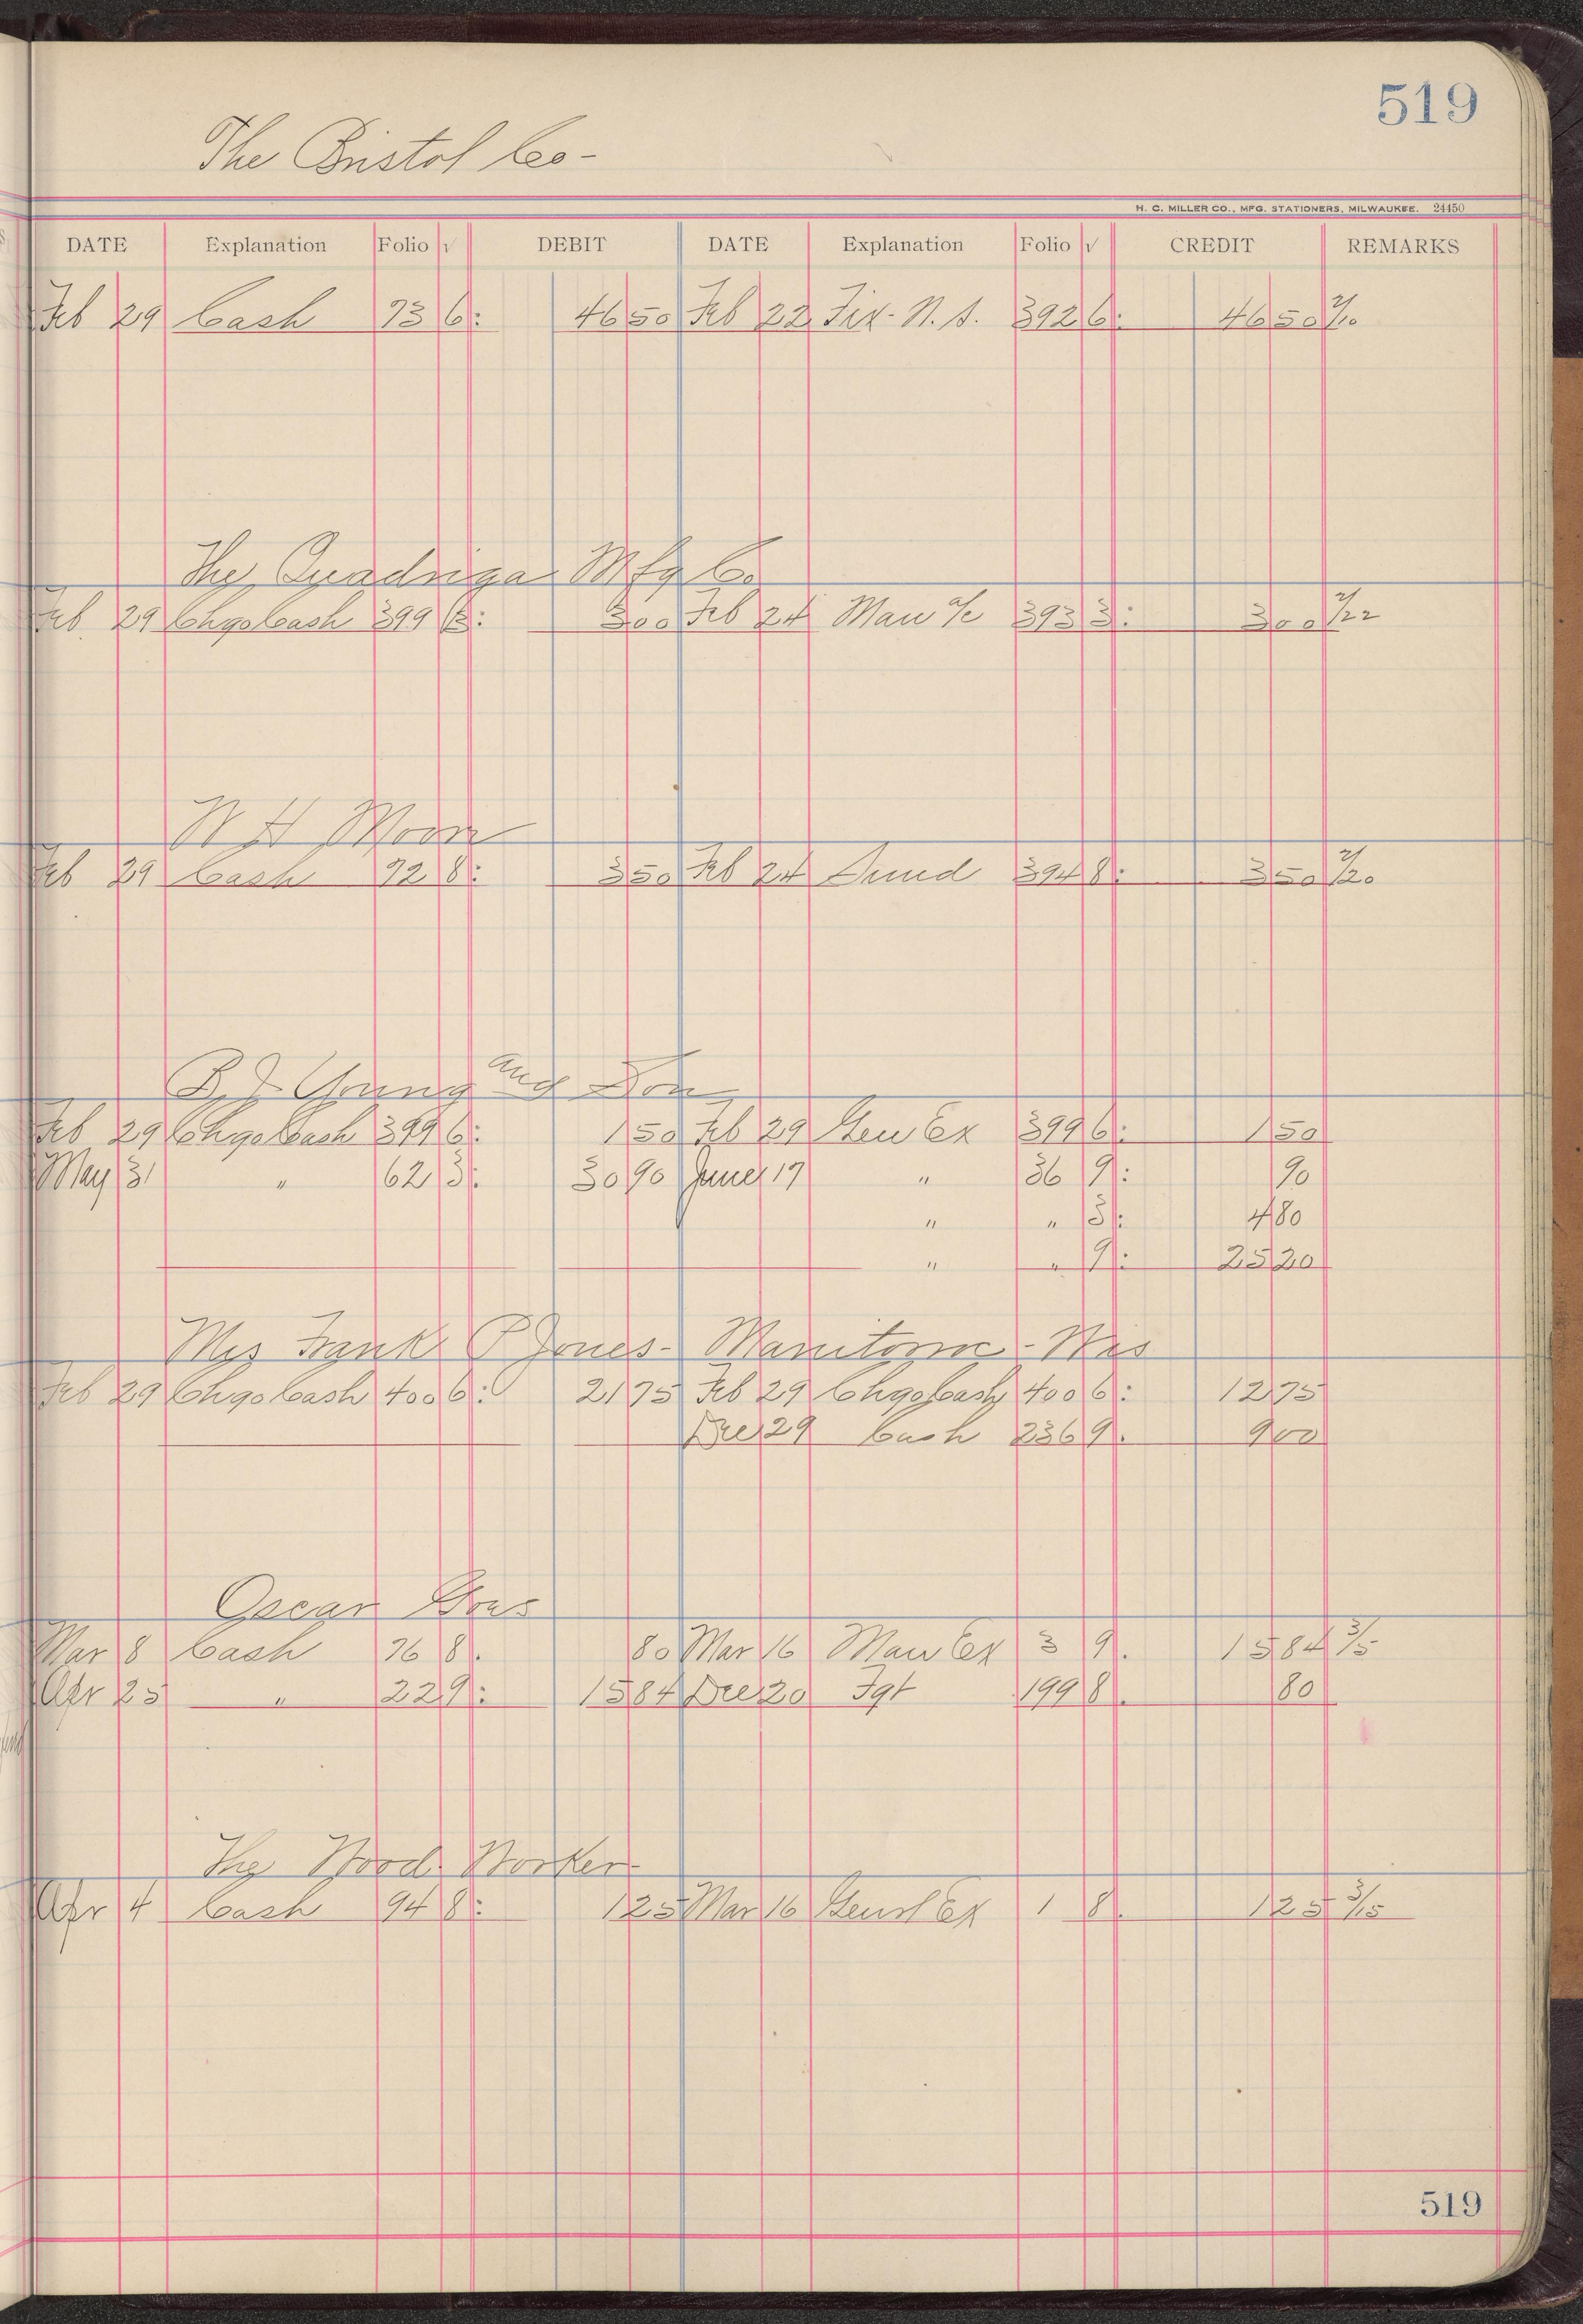 519
The Bristol Co-
H. C. MILLER CO., MFG. STATIONERS, MILWAUKEE. 24450
DATE Explanation Folio √ DEBIT DATE Explanation Folio √ CREDIT REMARKS
Feb 29 Cash 73 6: 46 50 Feb 22 Fix- N.S. 392 6: 46 50 2/10
The Quadriga Mfg Co
Feb 29 Chgo Cash 399 3: 3 00 Feb 24 Man a/c 393 3: 3 00 2/22
W H Moon
Feb 29 Cash 72 8: 3 50 Feb 24 Sund 394 8: 3 50 2/20
B J Young and Son
Feb 29 Chgo Cash 399 6: 1 50 Feb 29 Gen Ex 399 6: 1 50
May 31 " 62 3: 30 90 June 17 " 36 9: 90
" " 3: 4 80
" " 9: 25 20
Mrs Frank P Jones- Manitowoc - Wis
Feb 29 Chgo Cash 400 6: 21 75 Feb 29 Chgo Cash 400 6: 12 75
Dec 29 Cash 236 9. 9 00
Oscar
Mar 8 Cash 76 8. 80 Mar 16 Man Ex 3 9. 15 84 3/5
Apr 25 " 22 9: 15 84 Dec 20 Fgt 199 8. 80
The Wood Worker
Apr 4 Cash 94 8: 1 25 Mar 16 Genl Ex 1 8. 1 25 3/15
519